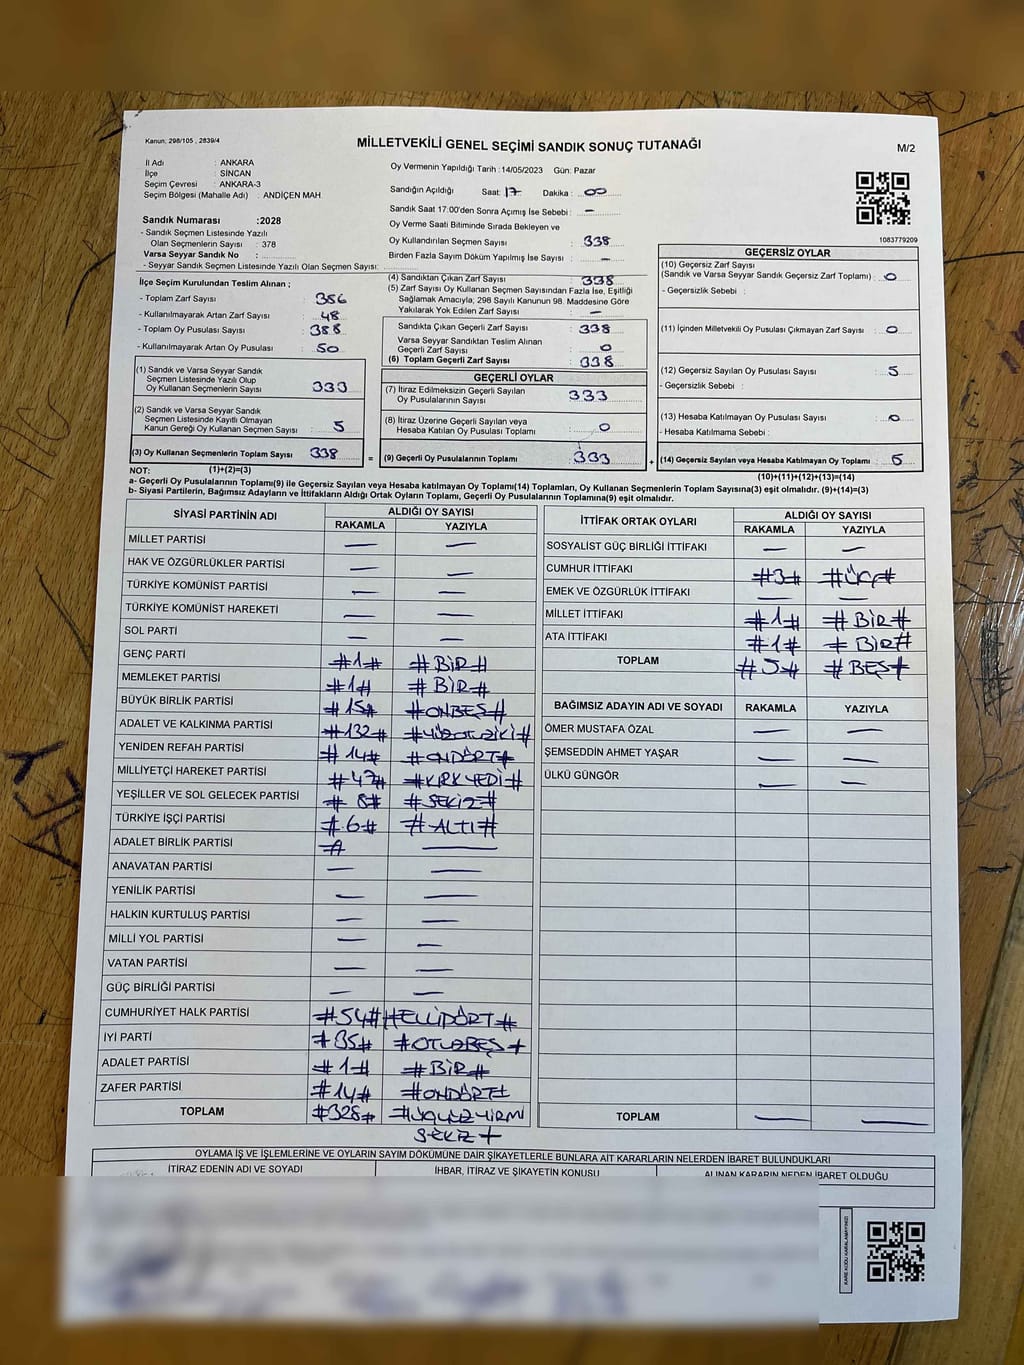 Kanun; 298/105 , 2839/4
MİLLETVEKİLİ GENEL SEÇİMİ SANDIK SONUÇ TUTANAĞI
M/2
İl Adı : ANKARA
İlçe : SİNCAN
Seçim Çevresi : ANKARA-3
Seçim Bölgesi (Mahalle Adı) : ANDİÇEN MAH
Oy Vermenin Yapıldığı Tarih :14/05/2023 Gün: Pazar
Sandığın Açıldığı Saat: 17 Dakika : 00
Sandık Saat 17:00'den Sonra Açımış İse Sebebi : –
Oy Verme Saati Bitiminde Sırada Bekleyen ve
Oy Kullandırılan Seçmen Sayısı : 338
Birden Fazla Sayım Döküm Yapılmış İse Sayısı : –
1083779209
Sandık Numarası :2028
- Sandık Seçmen Listesinde Yazılı
Olan Seçmenlerin Sayısı : 378
Varsa Seyyar Sandık No :
- Seyyar Sandık Seçmen Listesinde Yazılı Olan Seçmen Sayısı:
İlçe Seçim Kurulundan Teslim Alınan ;
- Toplam Zarf Sayısı : 386
- Kullanılmayarak Artan Zarf Sayısı : 48
- Toplam Oy Pusulası Sayısı : 388
- Kullanılmayarak Artan Oy Pusulası : 50
(1) Sandık ve Varsa Seyyar Sandık
Seçmen Listesinde Yazılı Olup
Oy Kullanan Seçmenlerin Sayısı : 333
(2) Sandık ve Varsa Seyyar Sandık
Seçmen Listesinde Kayıtlı Olmayan
Kanun Gereği Oy Kullanan Seçmen Sayısı : 5
(3) Oy Kullanan Seçmenlerin Toplam Sayısı : 338
(4) Sandıktan Çıkan Zarf Sayısı : 338
(5) Zarf Sayısı Oy Kullanan Seçmen Sayısından Fazla İse, Eşitliği
Sağlamak Amacıyla; 298 Sayılı Kanunun 98. Maddesine Göre
Yakılarak Yok Edilen Zarf Sayısı : –
Sandıkta Çıkan Geçerli Zarf Sayısı : 338
Varsa Seyyar Sandıktan Teslim Alınan
Geçerli Zarf Sayısı : 0
(6) Toplam Geçerli Zarf Sayısı : 338
GEÇERLİ OYLAR
(7) İtiraz Edilmeksizin Geçerli Sayılan
Oy Pusulalarının Sayısı : 333
(8) İtiraz Üzerine Geçerli Sayılan veya
Hesaba Katılan Oy Pusulası Toplamı : 0
= (9) Geçerli Oy Pusulalarının Toplamı : 333 +
GEÇERSİZ OYLAR
(10) Geçersiz Zarf Sayısı
(Sandık ve Varsa Seyyar Sandık Geçersiz Zarf Toplamı) : 0
- Geçersizlik Sebebi :
(11) İçinden Milletvekili Oy Pusulası Çıkmayan Zarf Sayısı : 0
(12) Geçersiz Sayılan Oy Pusulası Sayısı : 5
- Geçersizlik Sebebi :
(13) Hesaba Katılmayan Oy Pusulası Sayısı : 0
- Hesaba Katılmama Sebebi :
(14) Geçersiz Sayılan veya Hesaba Katılmayan Oy Toplamı : 5
NOT: (1)+(2)=(3) (10)+(11)+(12)+(13)=(14)
a- Geçerli Oy Pusulalarının Toplamı(9) ile Geçersiz Sayılan veya Hesaba katılmayan Oy Toplamı(14) Toplamları, Oy Kullanan Seçmenlerin Toplam Sayısına(3) eşit olmalıdır. (9)+(14)=(3)
b- Siyasi Partilerin, Bağımsız Adayların ve İttifakların Aldığı Ortak Oyların Toplamı, Geçerli Oy Pusulalarının Toplamına(9) eşit olmalıdır.
SİYASİ PARTİNİN ADI ALDIĞI OY SAYISI
RAKAMLA YAZIYLA
MİLLET PARTİSİ — —
HAK VE ÖZGÜRLÜKLER PARTİSİ — —
TÜRKİYE KOMÜNİST PARTİSİ — —
TÜRKİYE KOMÜNİST HAREKETİ — —
SOL PARTİ — —
GENÇ PARTİ #1# #BİR#
MEMLEKET PARTİSİ #1# #BİR#
BÜYÜK BİRLİK PARTİSİ #15# #ONBEŞ#
ADALET VE KALKINMA PARTİSİ #132# #YÜZOTUZİKİ#
YENİDEN REFAH PARTİSİ #14# #ONDÖRT#
MİLLİYETÇİ HAREKET PARTİSİ #47# #KIRKYEDİ#
YEŞİLLER VE SOL GELECEK PARTİSİ #8# #SEKİZ#
TÜRKİYE İŞÇİ PARTİSİ #6# #ALTI#
ADALET BİRLİK PARTİSİ —
ANAVATAN PARTİSİ — —
YENİLİK PARTİSİ — —
HALKIN KURTULUŞ PARTİSİ — —
MİLLİ YOL PARTİSİ — —
VATAN PARTİSİ — —
GÜÇ BİRLİĞİ PARTİSİ — —
CUMHURİYET HALK PARTİSİ #54# #ELLİDÖRT#
İYİ PARTİ #35# #OTUZBEŞ#
ADALET PARTİSİ #1# #BİR#
ZAFER PARTİSİ #14# #ONDÖRT#
TOPLAM #328# #ÜÇYÜZYİRMİ
SEKİZ#
İTTİFAK ORTAK OYLARI ALDIĞI OY SAYISI
RAKAMLA YAZIYLA
SOSYALİST GÜÇ BİRLİĞİ İTTİFAKI — —
CUMHUR İTTİFAKI #3# #ÜÇ#
EMEK VE ÖZGÜRLÜK İTTİFAKI — —
MİLLET İTTİFAKI #1# #BİR#
ATA İTTİFAKI #1# #BİR#
TOPLAM #5# #BEŞ#
BAĞIMSIZ ADAYIN ADI VE SOYADI RAKAMLA YAZIYLA
ÖMER MUSTAFA ÖZAL — —
ŞEMSEDDİN AHMET YAŞAR — —
ÜLKÜ GÜNGÖR — —
TOPLAM — —
OYLAMA İŞ VE İŞLEMLERİNE VE OYLARIN SAYIM DÖKÜMÜNE DAİR ŞİKAYETLERLE BUNLARA AİT KARARLARIN NELERDEN İBARET BULUNDUKLARI
İTİRAZ EDENİN ADI VE SOYADI İHBAR, İTİRAZ VE ŞİKAYETİN KONUSU ALINAN KARARIN NEDEN İBARET OLDUĞU
KARE KODU KARALAMAYINIZ!